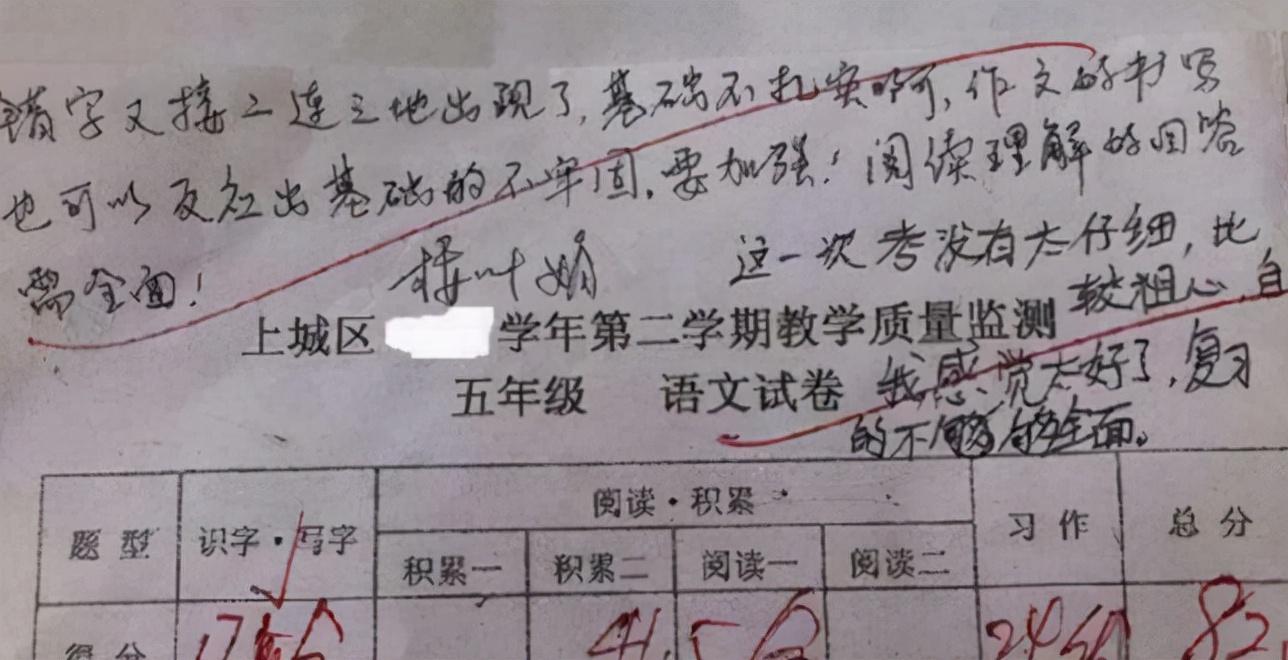 错字又接二连三地出现了,基础不扎实啊,作文的书写
也可以反应出基础的不牢固,要加强!阅读理解的回答
需全面!
这一次考没有太仔细,比
较粗心,自
上城区 学年第二学期教学质量监测
五年级 语文试卷
我感觉太好了,复习
的不够全面。
题型 识字·写字 阅读·积累 习作 总分
积累一 积累二 阅读一 阅读二
得分 82